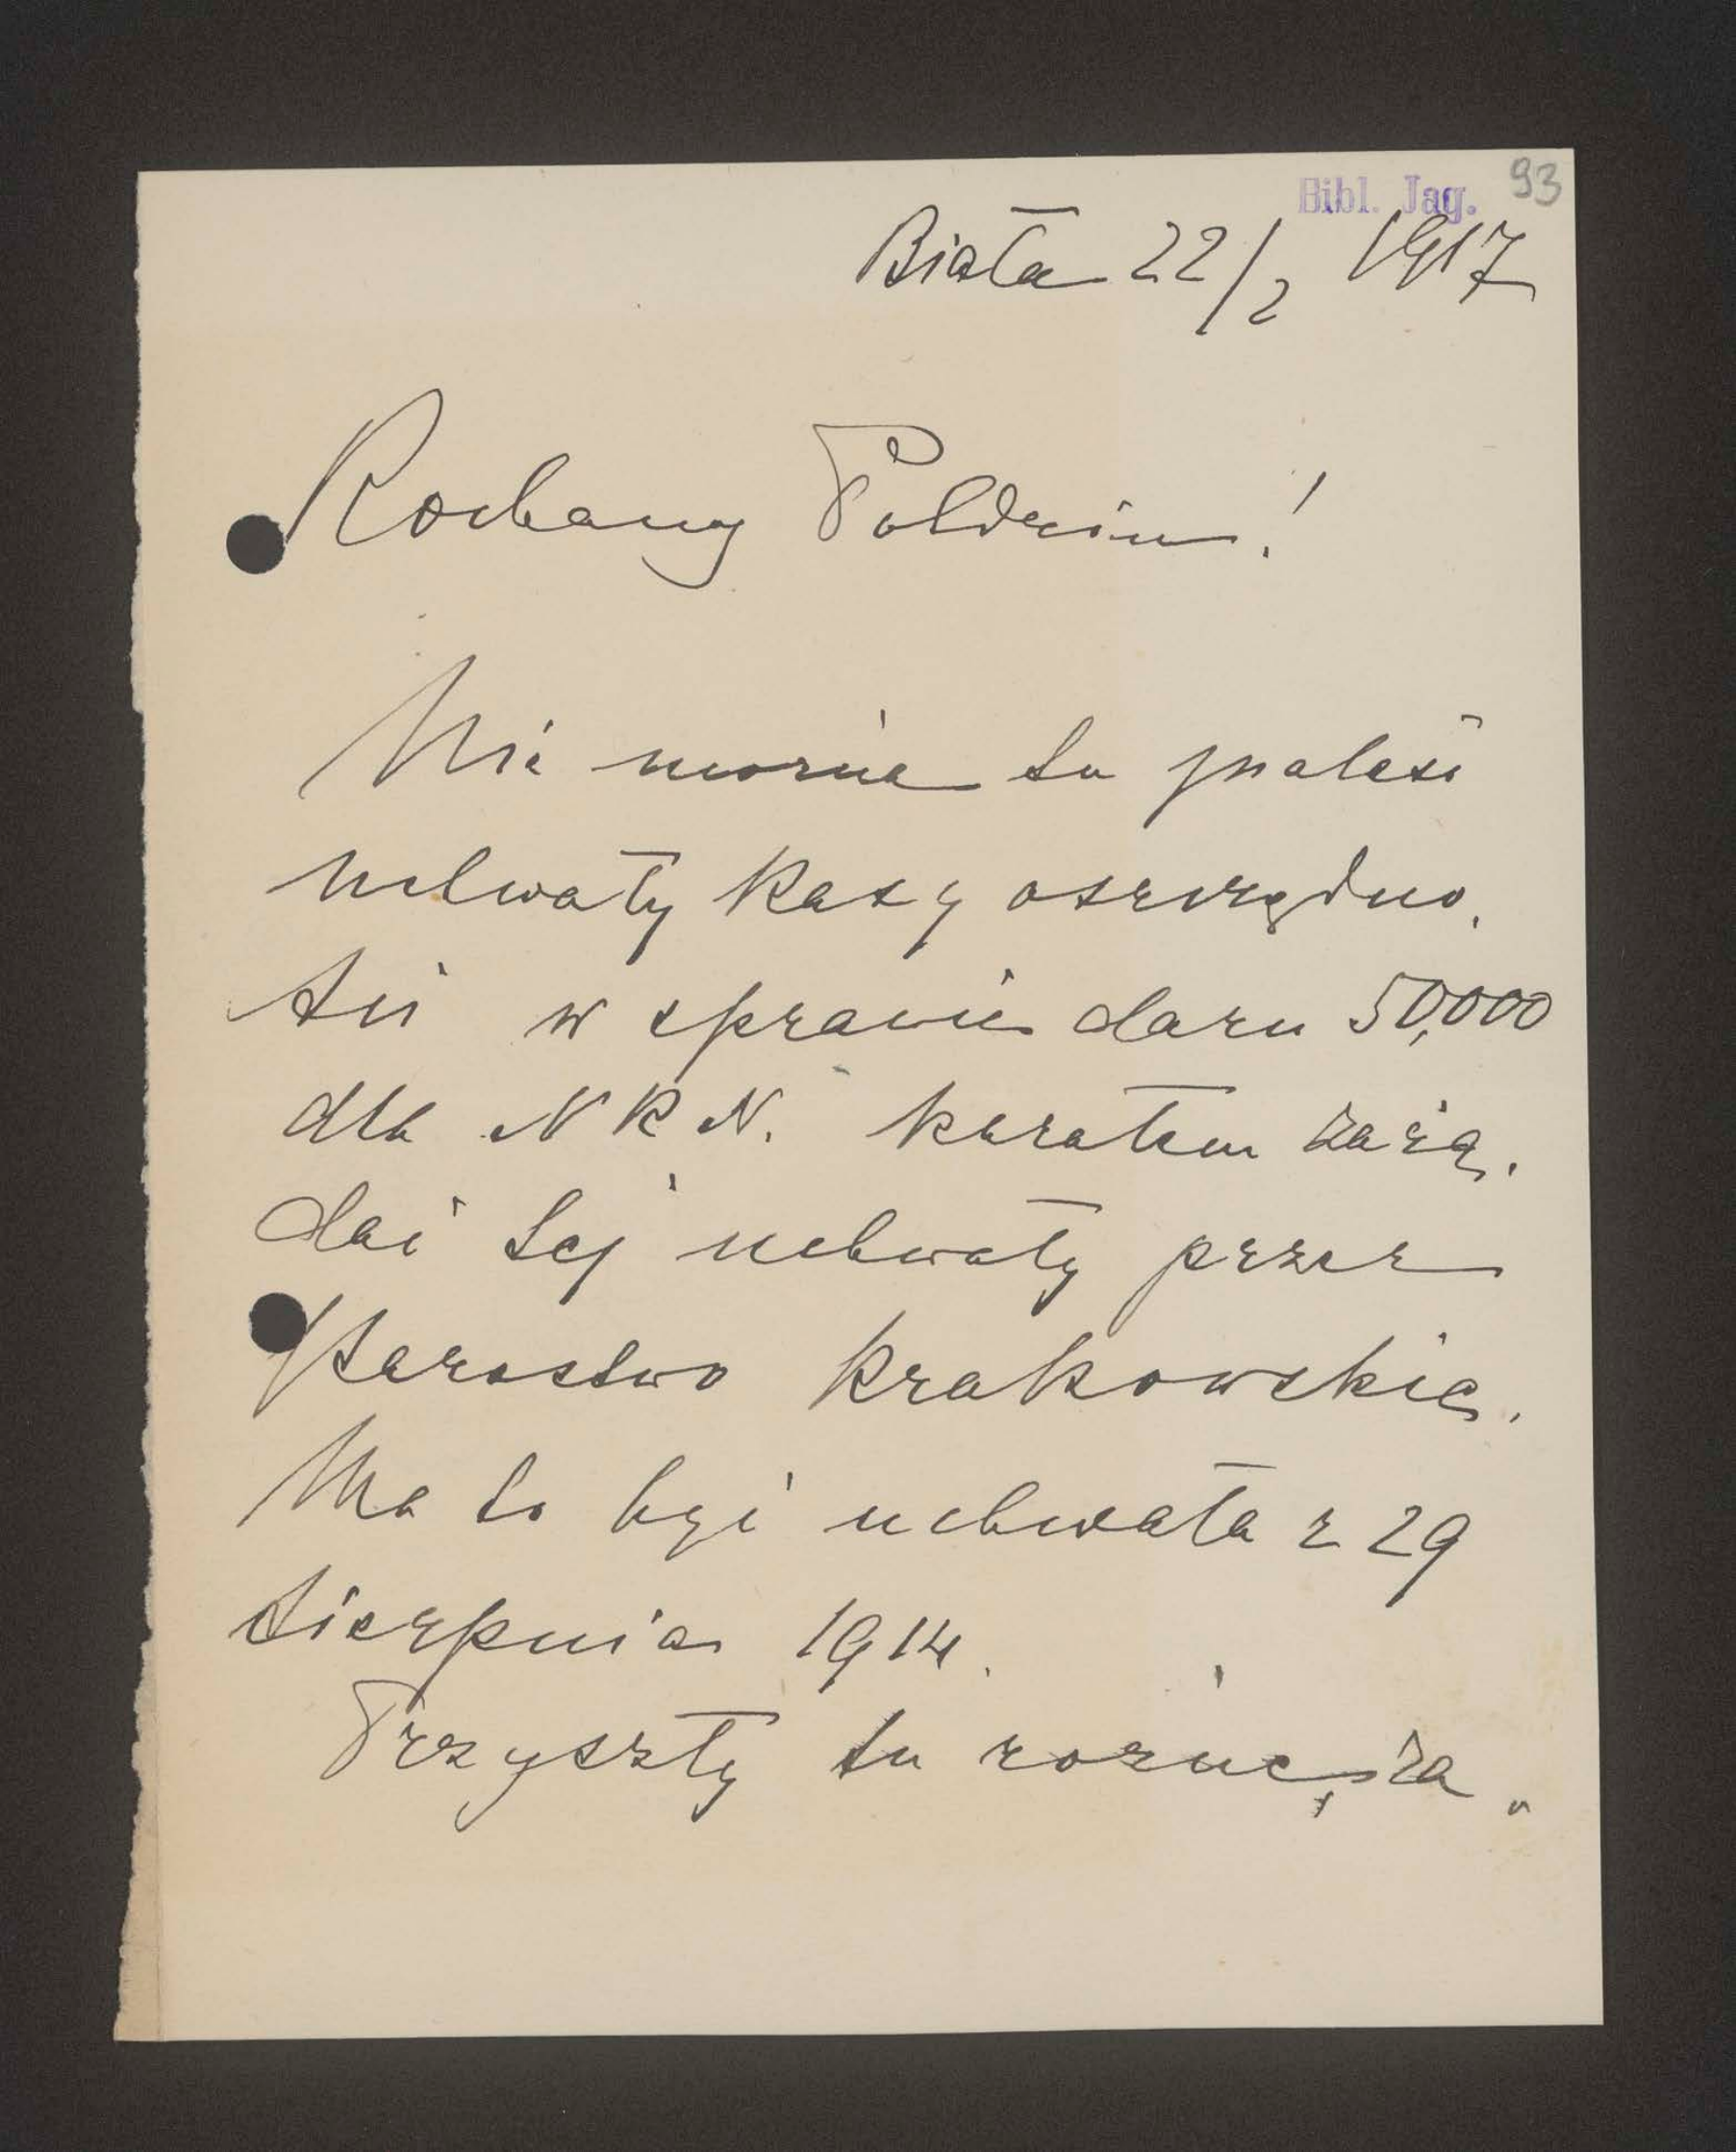 Bibl. Jag. 93
Biała 22/2 1917
Kochany Poldziu!
Nie można tu znaleść
uchwały Kasy oszczędno.
ści w sprawie daru 50,000
dla NKN. kazałem zażą.
dać tej uchwały przez
Starostwo krakowskie.
Ma to być uchwała z 29
sierpnia 1914.
Przyszły tu różne za„